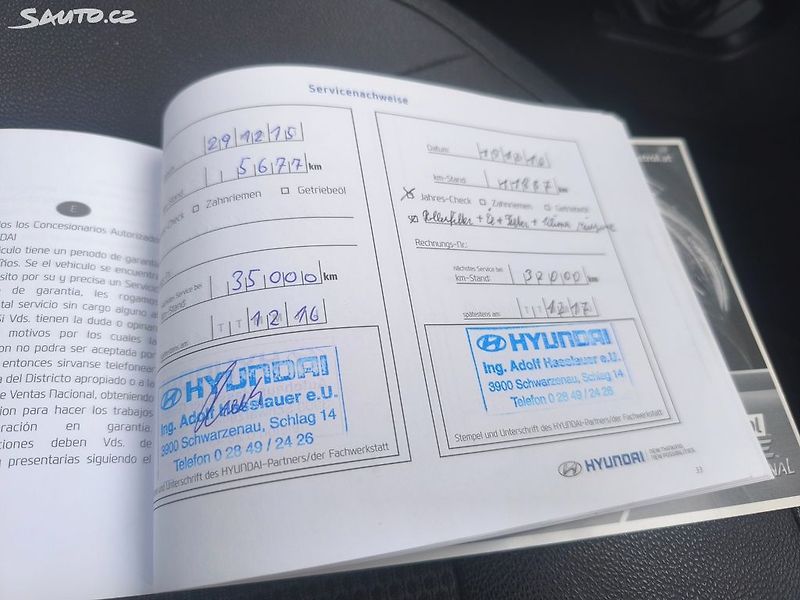 Sauto.cz
E
los Concesionarios Autorizado
DAI
tiene un periodo de garantía
ños. Se el vehículo se encuentra
por su y precisa un Servicio
de garantía, les rogamos
tal servicio sin cargo alguno
Si Vds. tienen la duda o opinan
motivos por los cuales la
no podra ser aceptada por
entonces sirvanse telefonear
del Districto apropiado o a la
e Ventas Nacional, obteniendo
para hacer los trabajos
en garantía.
deben Vds. de
presentarias siguiendo el
Servicenachweise
29 12 15
5677 km
Zahnriemen Getriebeöl
Service bei
35000 km
spätestens am:
TT 12 16
HYUNDAI
Ing. Adolf Hasslauer e.U.
3900 Schwarzenau, Schlag 14
Telefon 0 28 49 / 24 26
und Unterschrift des HYUNDAI-Partners/der Fachwerkstatt
Datum:
km-Stand: km
Jahres-Check Zahnriemen Getriebeöl
Pollenfilter + + +
Rechnungs-Nr.:
Nächstes Service bei
km-Stand: 32000 km
spätestens am: TT 12 17
HYUNDAI
Ing. Adolf Hasslauer e.U.
3900 Schwarzenau, Schlag 14
Telefon 0 28 49 / 24 26
Stempel und Unterschrift des HYUNDAI-Partners/der Fachwerkstatt
HYUNDAI NEW THINKING. NEW POSSIBILITIES.
33